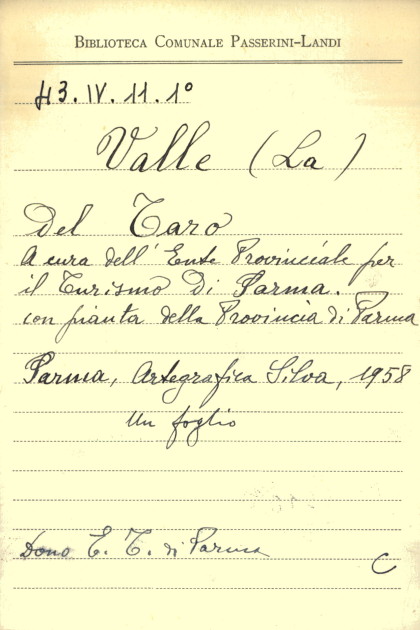 BIBLIOTECA COMUNALE PASSERINI-LANDI
43.IV.11.1°
Valle (La)
Del Taro
A cura dell'Ente Provinciale per
il Turismo di Parma.
con pianta della Provincia di Parma
Parma, Artegrafica Silva, 1958
Un foglio
Dono E. T. di Parma
C